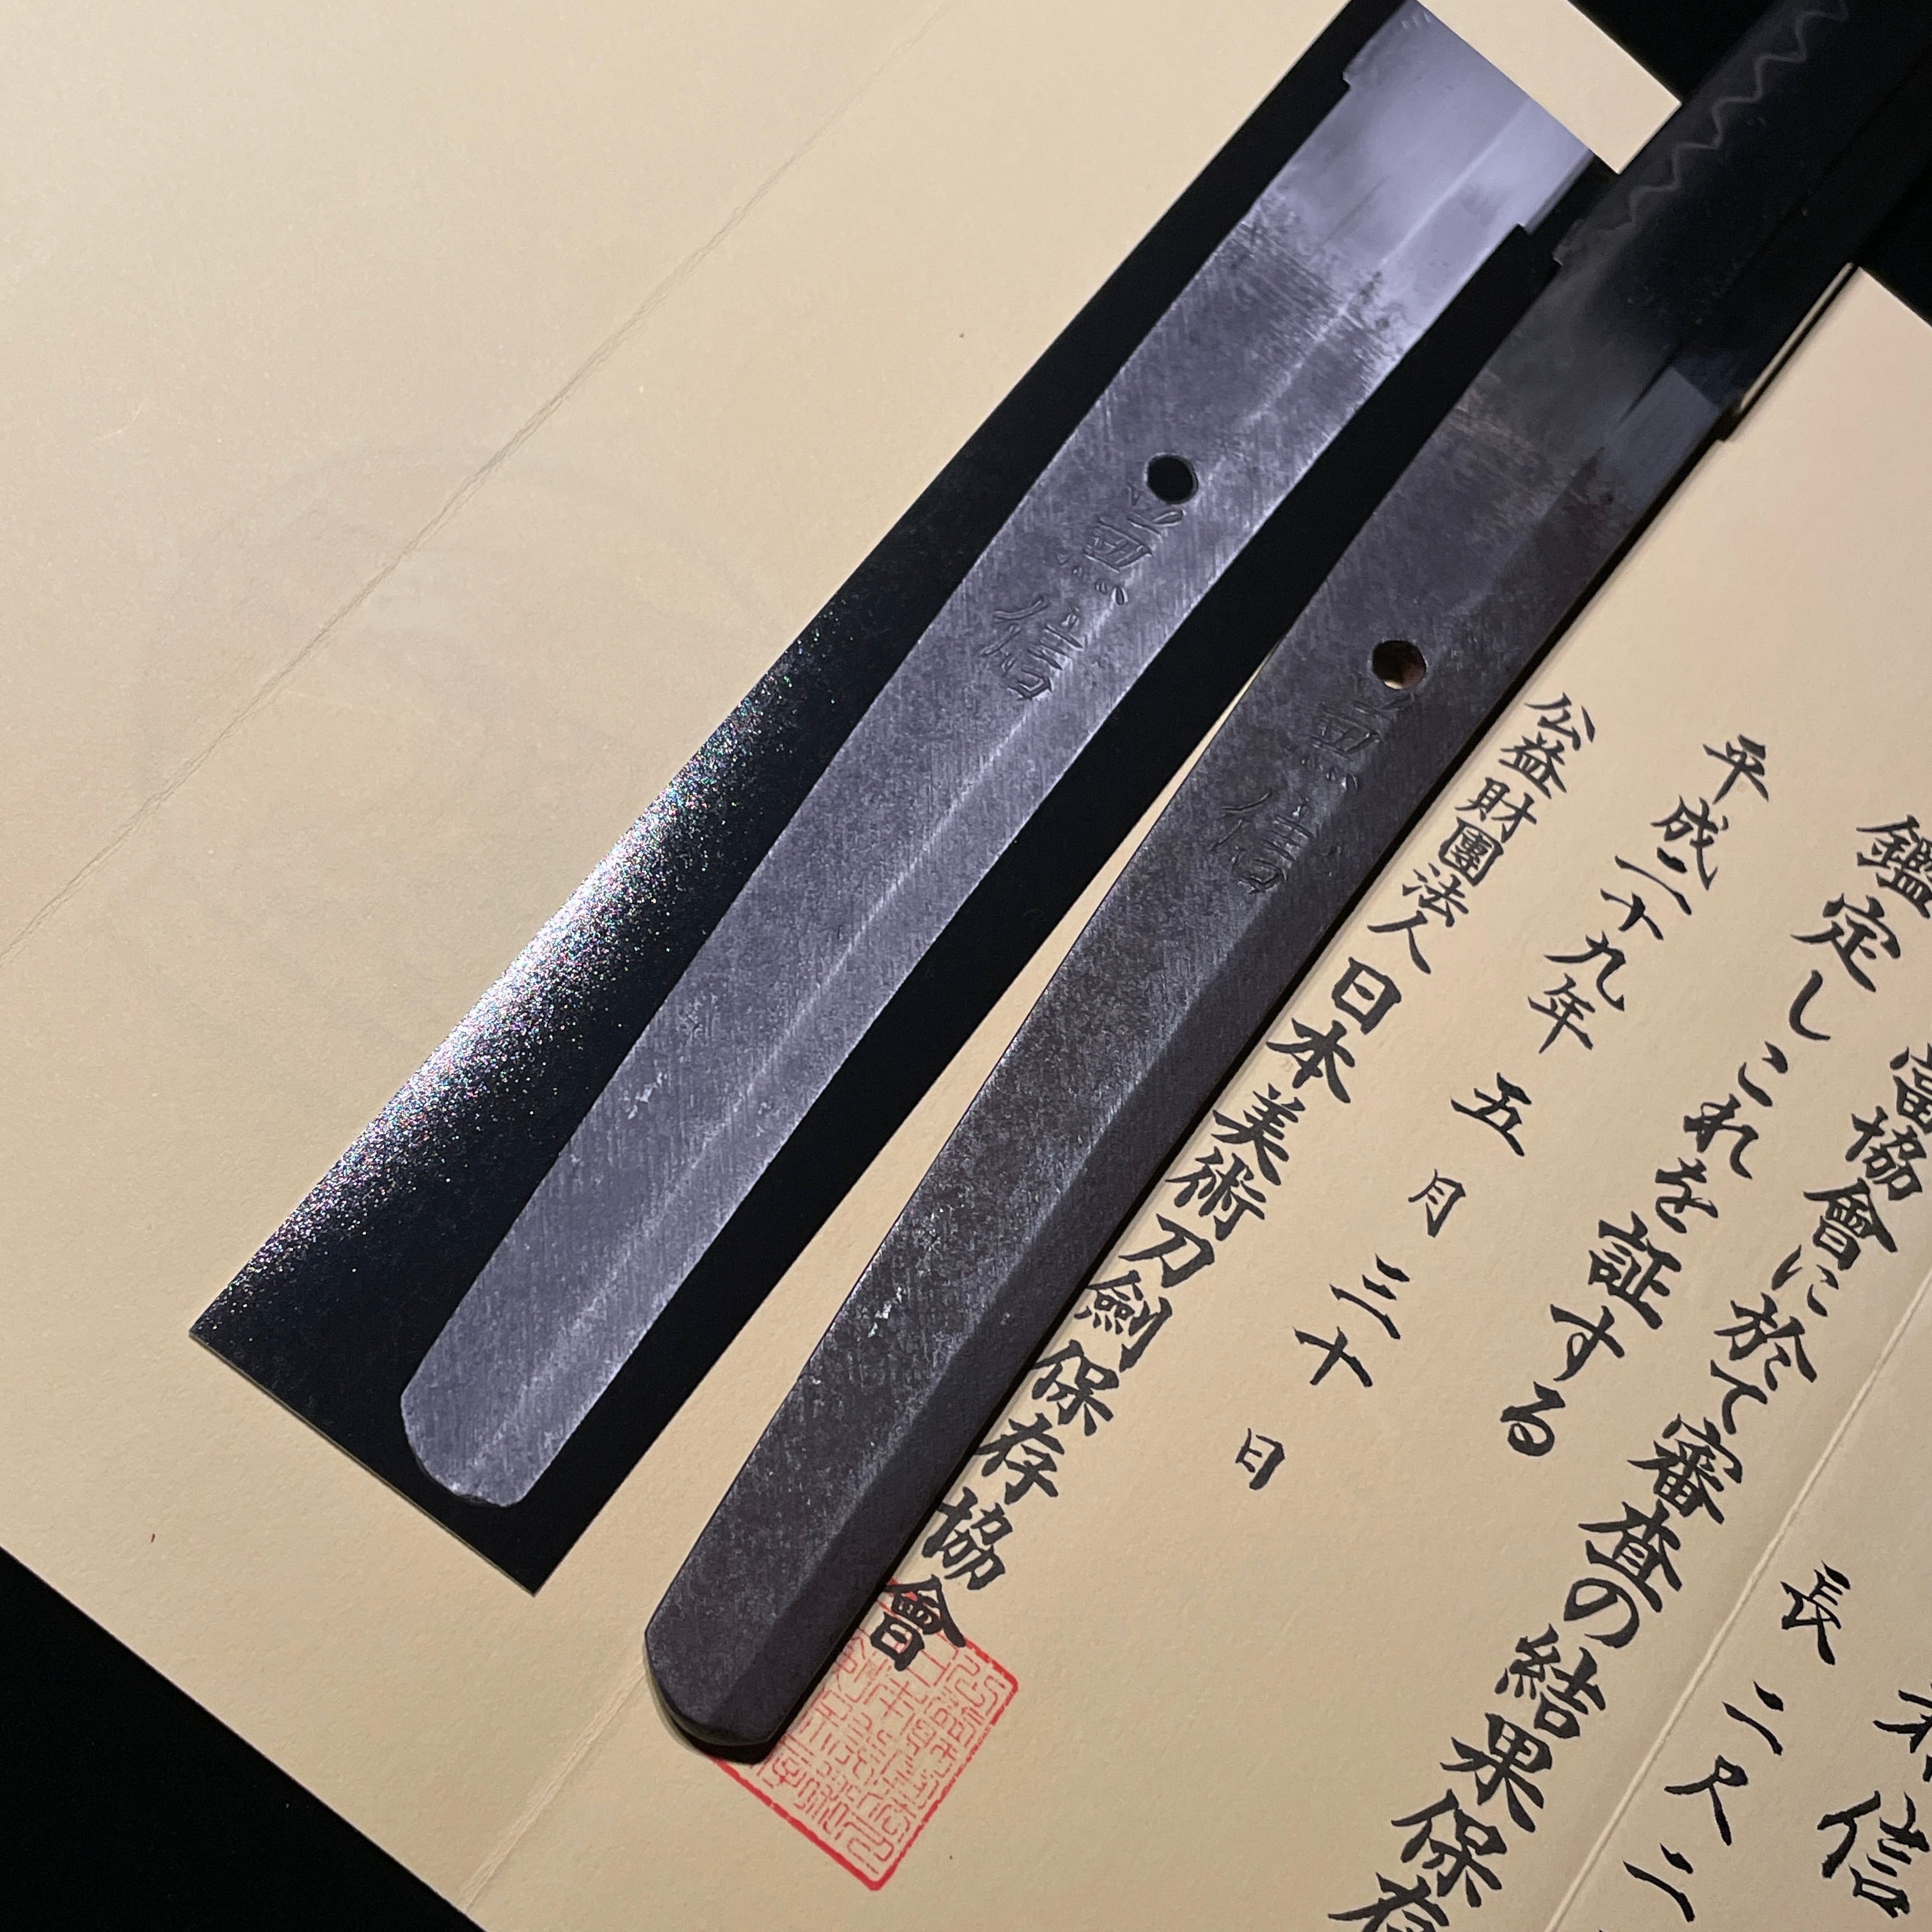 兼信
兼信
信
長 二尺二
當協會に於て審査の結果保存
鑑定しこれを証する
平成二十九年 五月 三十 日
公益財團法人日本美術刀劍保存協會